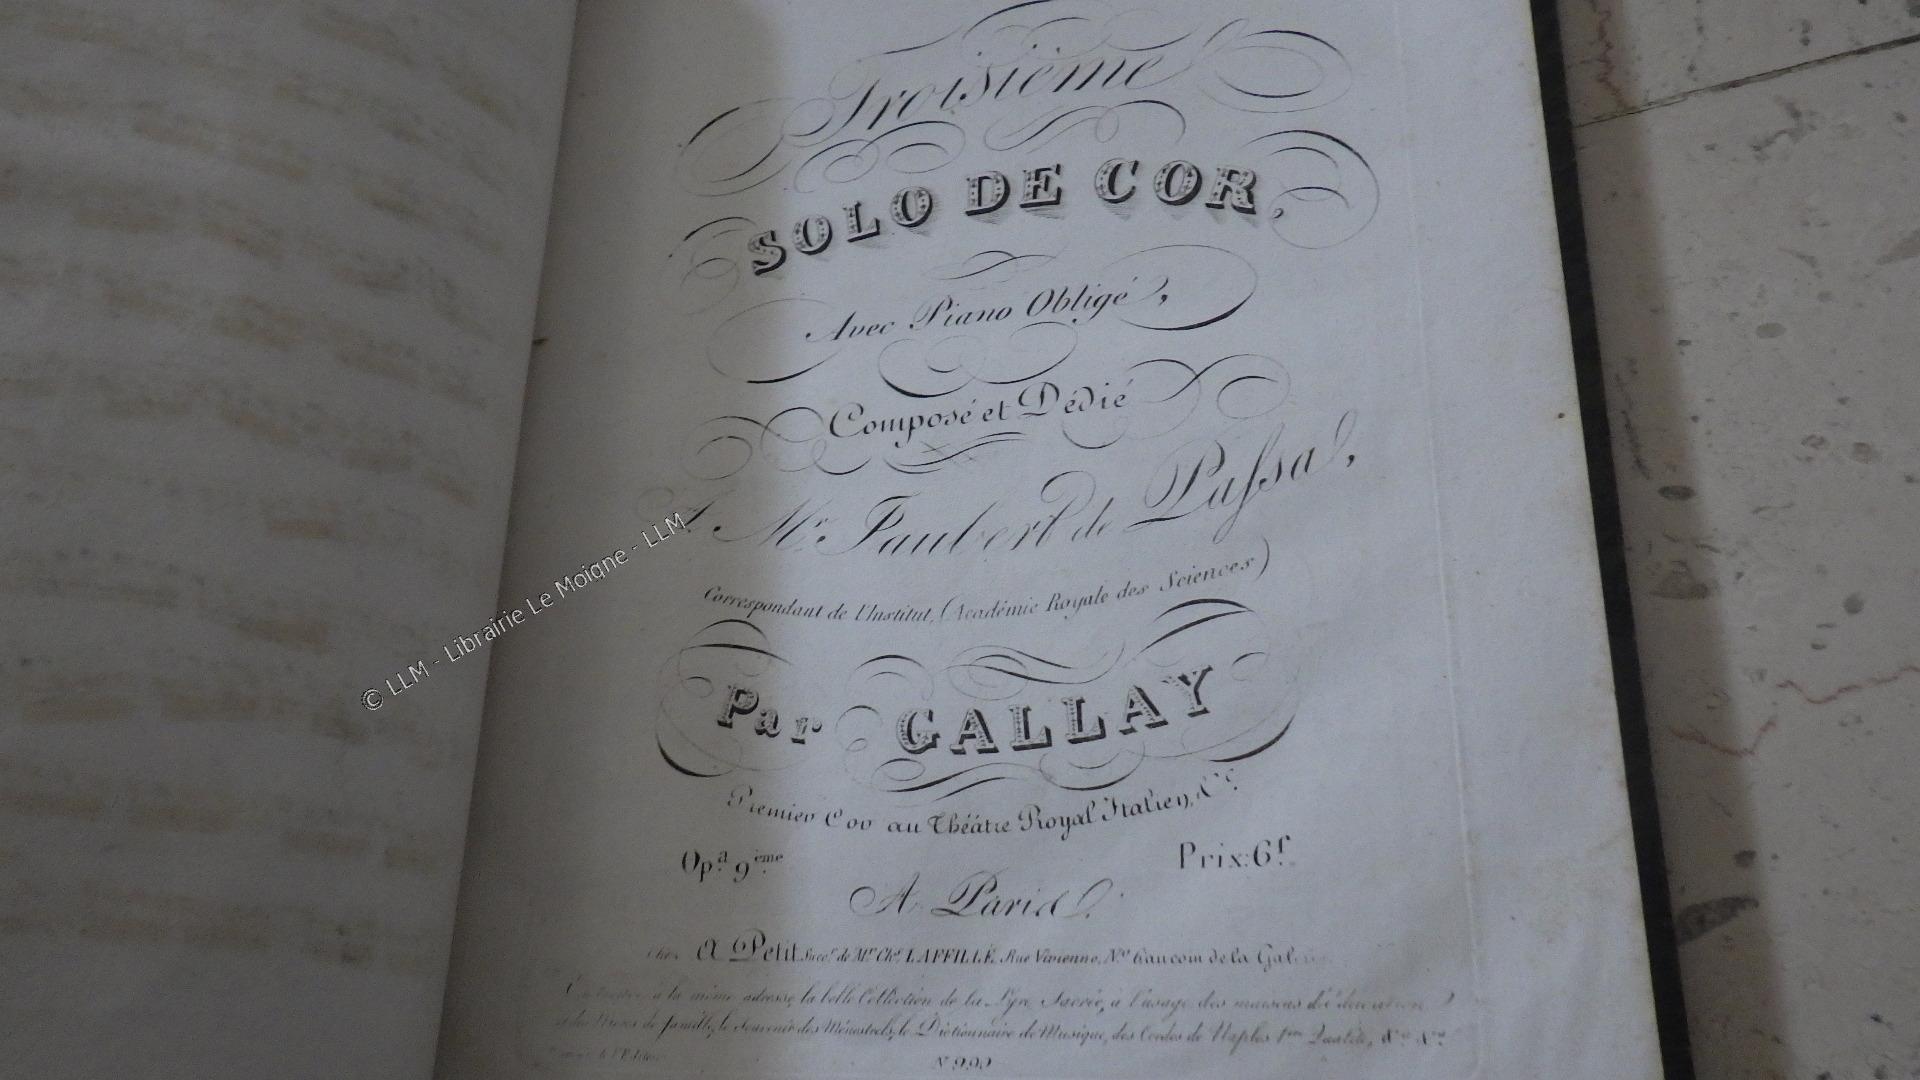 Troisième
SOLO DE COR,
Avec Piano Obligé,
Composé et Dédié
A Mr. Jaubert de Passa,
Correspondant de l'Institut, (Académie Royale des Sciences)
Par GALLAY
Premier Cor au Théâtre Royal Italien, &c.
Opa. 9ème. Prix: 6f.
A Paris.
Chez A Petit Succr. de Mr. Chs. LAFFILLÉ, Rue Vivienne, No. 6 au coin de la
à la même adresse, la belle Collection de la Lyre Sacrée, à l'usage des maisons d'éducation
et des Mères de famille, le Souvenir des Ménestrels, le Dictionnaire de Musique, des Cordes de Naples 1ère Qualité, &a. &a.
l'Editeur
© LLM - Librairie Le Moigne - LLM